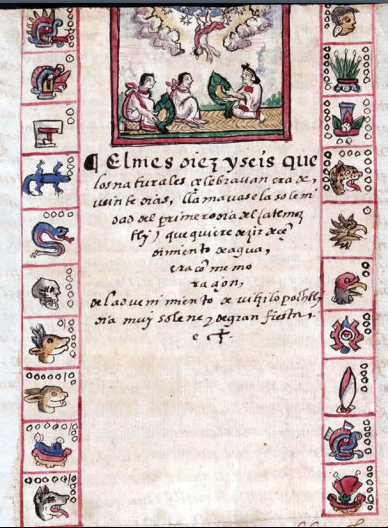 ¶ El mes diez y seis que
los naturales celebravan era de,
veinte dias, llamavase la solem̃i
dad del primero dia del (atemoz
tly) que quiere dezir de cẽ
dimiento de agua,
era cõmemo
raçon,
de la dvenimiento de vitzilopochtly
dia muy solene y de gran fiesta.